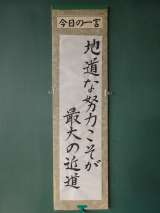 今日の一言
地道な努力こそが
最大の近道